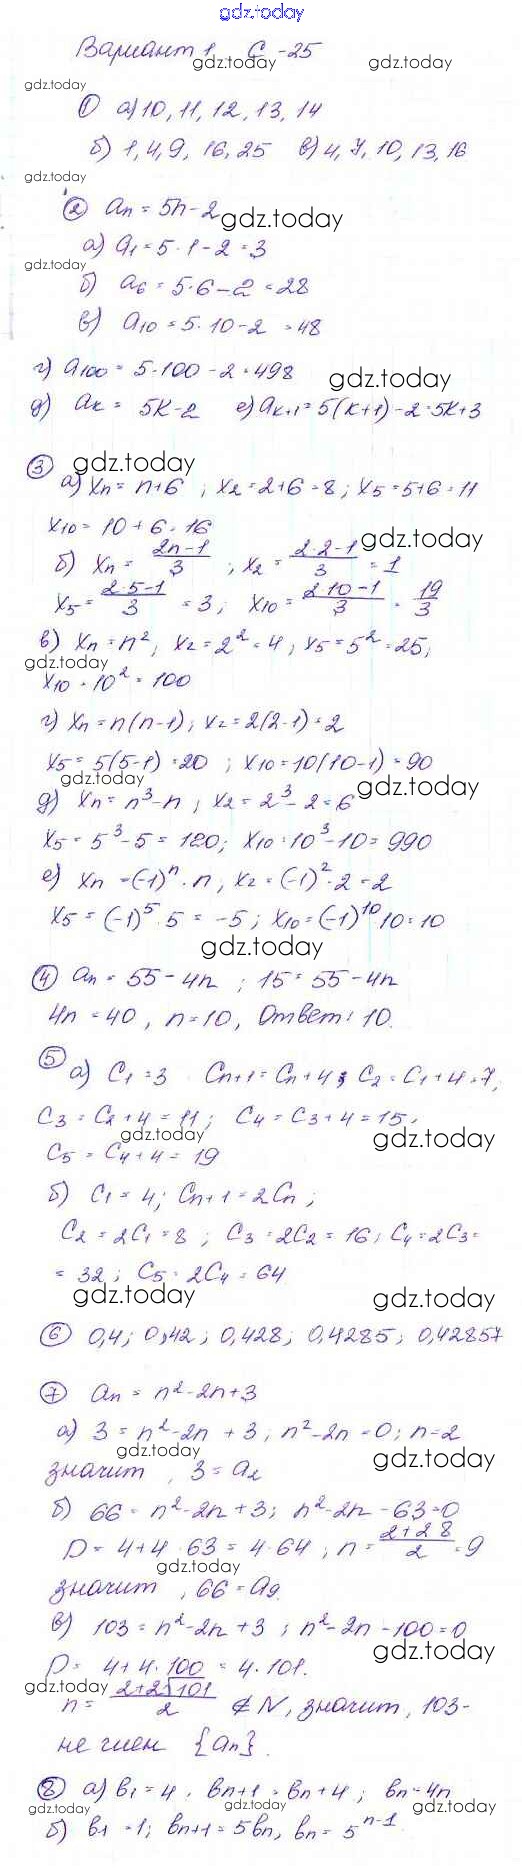 gdz.today
Вариант 1 С-25
gdz.today gdz.today
gdz.today
① а) 10, 11, 12, 13, 14
б) 1, 4, 9, 16, 25 в) 4, 7, 10, 13, 16
gdz.today
② an = 5n-2 gdz.today
а) a1 = 5·1-2 = 3
gdz.today
б) a6 = 5·6-2 = 28
в) a10 = 5·10-2 = 48
г) a100 = 5·100-2 = 498
gdz.today
д) aк = 5к-2 е) aк+1 = 5(к+1)-2 = 5к+3
③ gdz.today
а) xn = n+6 ; x2 = 2+6 = 8 ; x5 = 5+6 = 11
x10 = 10+6 = 16
gdz.today
б) xn = (2n-1)/3 , x2 = (2·2-1)/3 = 1
x5 = (2·5-1)/3 = 3 ; x10 = (2·10-1)/3 = 19/3
в) xn = n², x2 = 2² = 4 ; x5 = 5² = 25;
gdz.today
x10 = 10² = 100
г) xn = n(n-1) ; x2 = 2(2-1) = 2
x5 = 5(5-1) = 20 ; x10 = 10(10-1) = 90
gdz.today gdz.today
д) xn = n³-n ; x2 = 2³-2 = 6
x5 = 5³-5 = 120; x10 = 10³-10 = 990
е) xn = (-1)ⁿ·n , x2 = (-1)²·2 = 2
x5 = (-1)⁵·5 = -5 ; x10 = (-1)¹⁰·10 = 10
gdz.today
④ an = 55-4n ; 15 = 55-4n
4n = 40 , n = 10, Ответ: 10.
⑤ а) C1 = 3 Cn+1 = Cn+4 ; C2 = C1+4 = 7;
C3 = C2+4 = 11 ; C4 = C3+4 = 15 ;
gdz.today gdz.today
C5 = C4+4 = 19
б) C1 = 4; Cn+1 = 2Cn ;
C2 = 2C1 = 8 ; C3 = 2C2 = 16 ; C4 = 2C3 =
= 32 ; C5 = 2C4 = 64
gdz.today gdz.today
⑥ 0,4; 0,42; 0,428; 0,4285; 0,42857
⑦ an = n²-2n+3
а) 3 = n²-2n+3 ; n²-2n = 0; n = 2
gdz.today gdz.today
значит , 3 = a2
б) 66 = n²-2n+3 ; n²-2n-63 = 0
D = 4+4·63 = 4·64 ; n = (2+2·8)/2 = 9
gdz.today
значит , 66 = a9.
в) 103 = n²-2n+3 ; n²-2n-100 = 0
gdz.today
D = 4+4·100 = 4·101.
gdz.today
n = (2+2√101)/2 ∉ N, значит, 103-
не член {an}.
⑧ а) b1 = 4 , bn+1 = bn+4 ; bn = 4n
gdz.today gdz.today gdz.today
б) b1 = 1; bn+1 = 5bn, bn = 5ⁿ⁻¹.